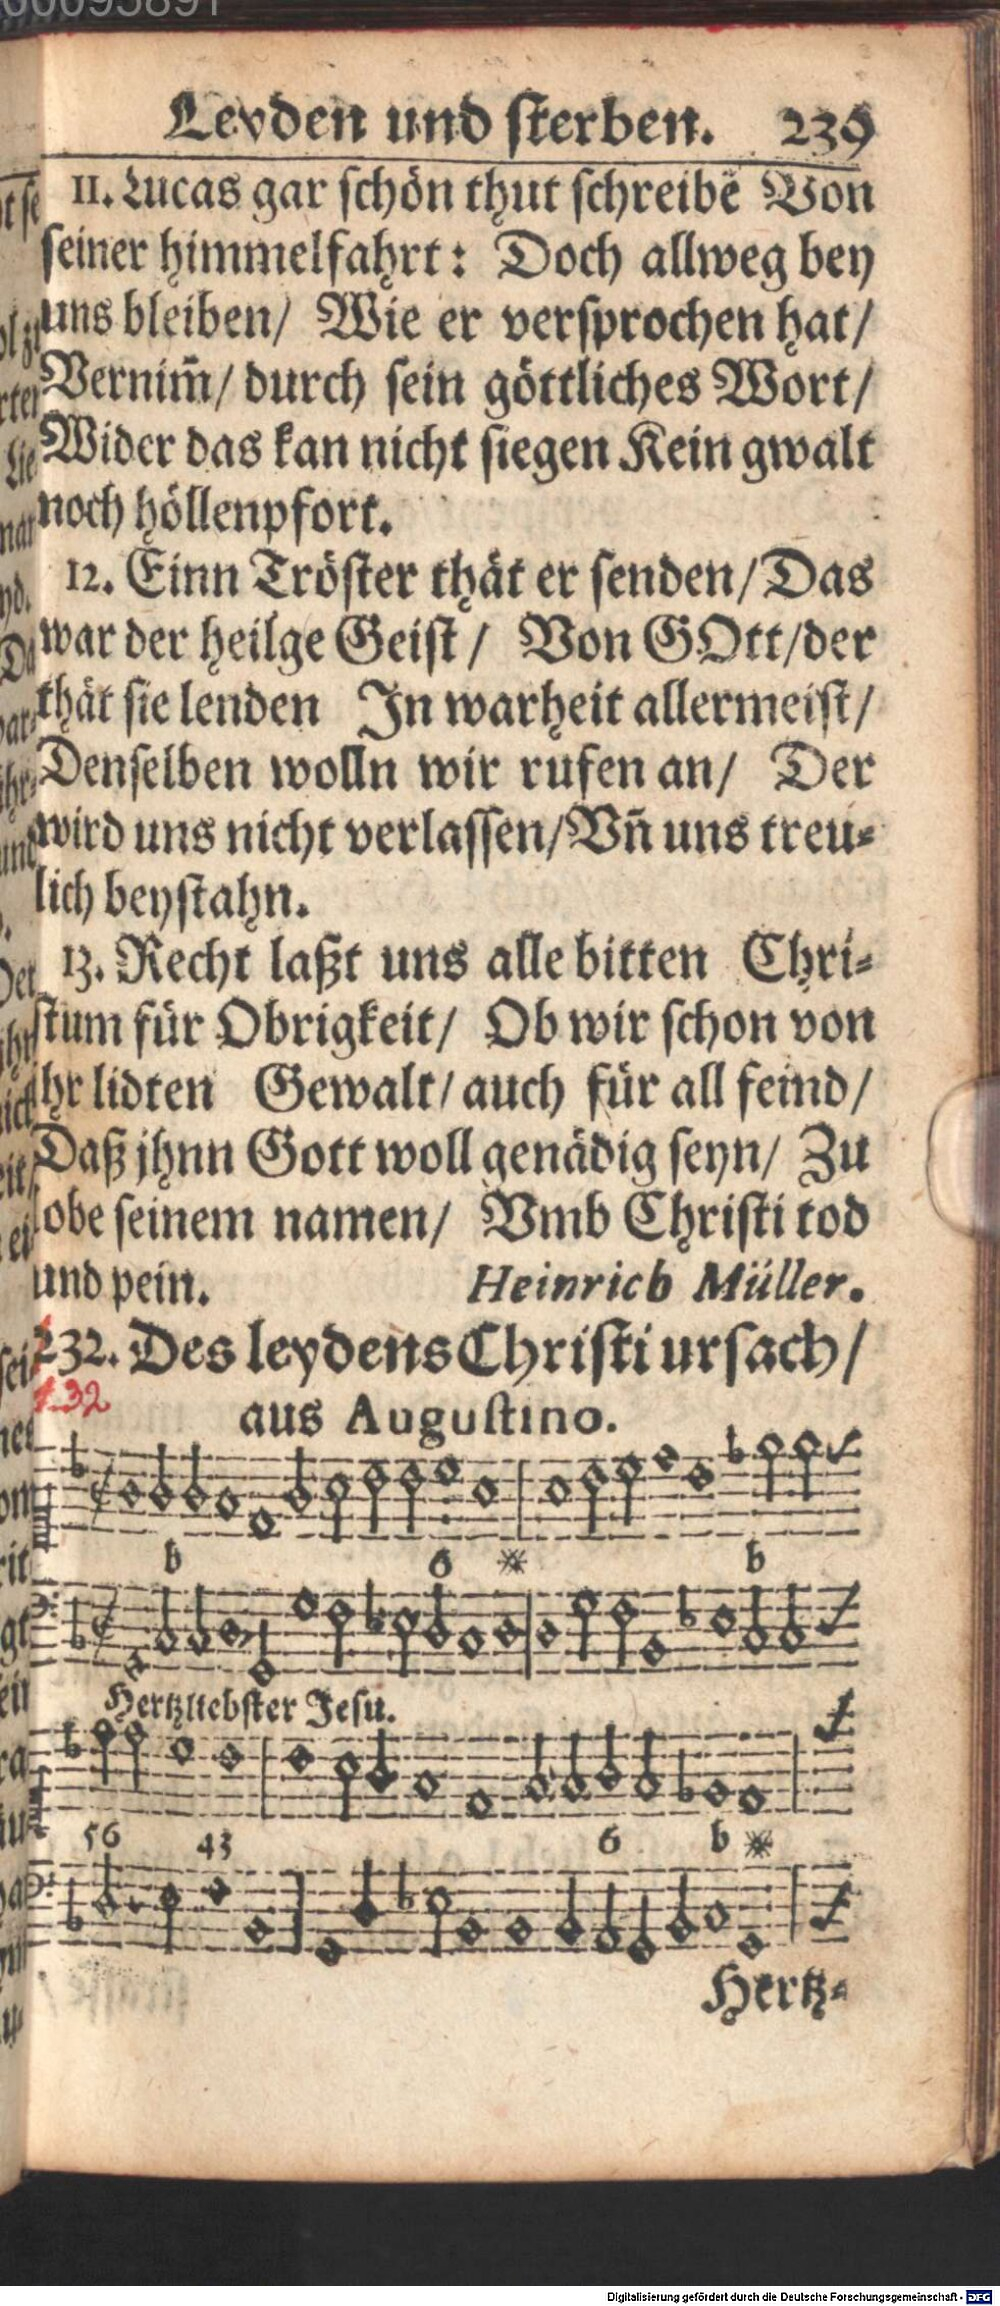 Leyden und sterben. 239
11. Lucas gar schön thut schreibẽ Von
seiner himmelfahrt: Doch allweg bey
uns bleiben/ Wie er versprochen hat/
Vernim̃/ durch sein göttliches Wort/
Wider das kan nicht siegen Kein gwalt
noch höllenpfort.
12. Einn Tröster thät er senden/ Das
war der heilge Geist/ Von GOtt/der
thät sie lenden In warheit allermeist/
Denselben wolln wir rufen an/ Der
wird uns nicht verlassen/Vñ uns treu-
lich beystahn.
13. Recht laßt uns alle bitten Chri-
stum für Obrigkeit/ Ob wir schon von
ihr lidten Gewalt/ auch für all feind/
Daß jhnn Gott woll genädig seyn/ Zu
lobe seinem namen/ Vmb Christi tod
und pein. Heinrich Müller.
232. Des leydens Christi ursach/
132
aus Augustino.
b 6 b
Hertzliebster Jesu.
56 43 6 b
Hertz-
Digitalisierung gefördert durch die Deutsche Forschungsgemeinschaft - DFG